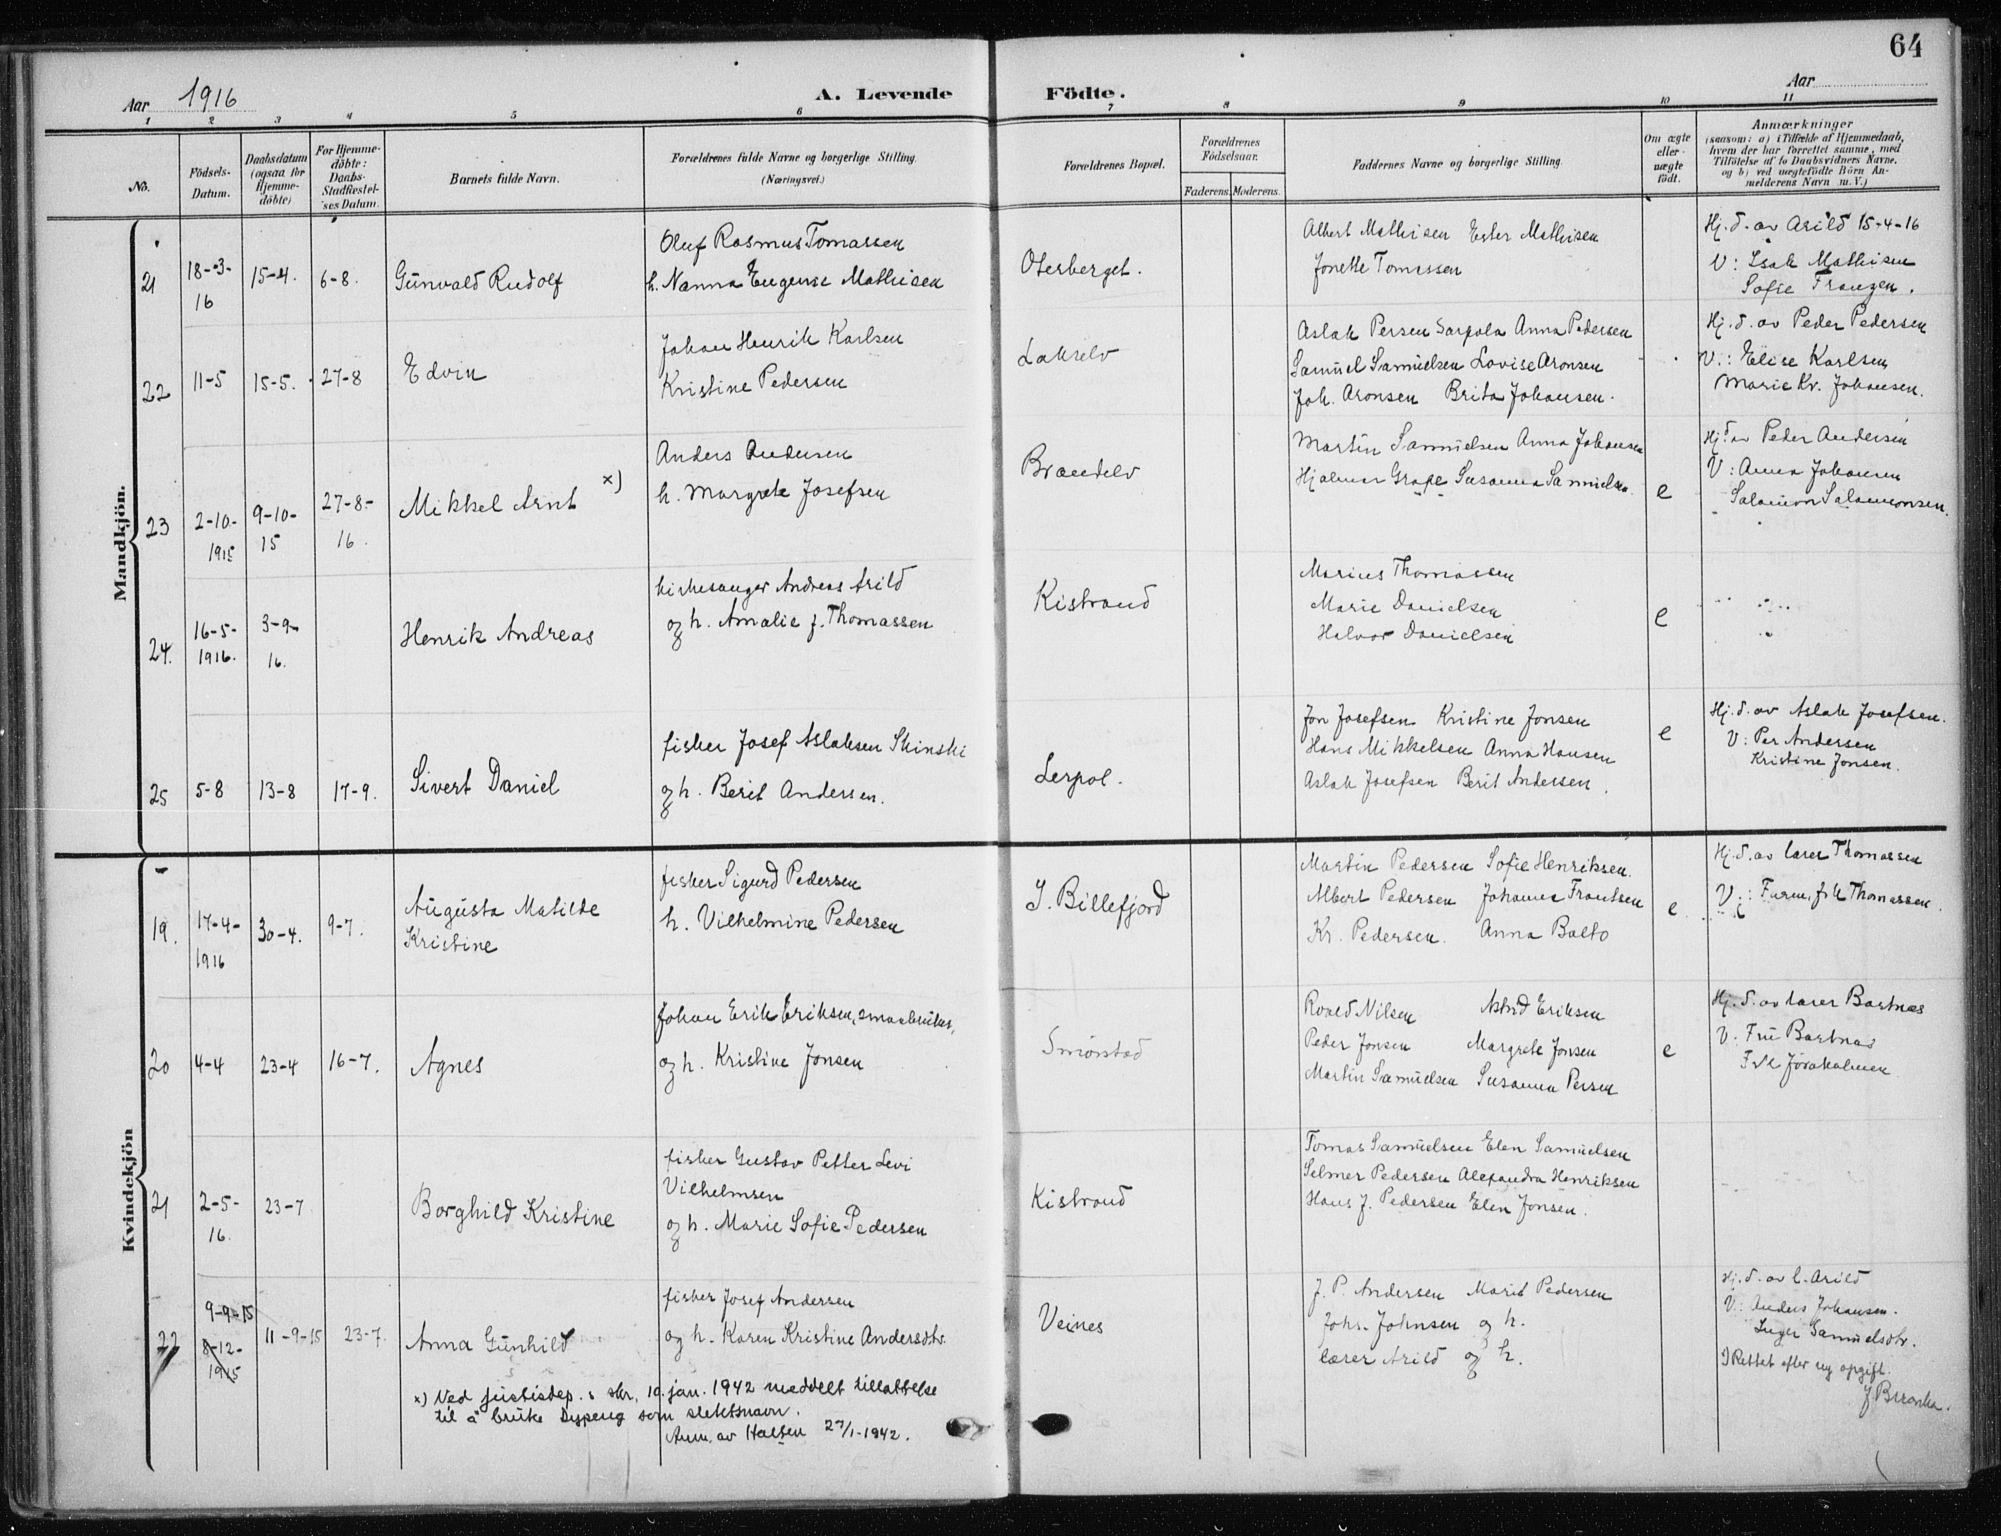 64
Aar 1916
A. Levende Födte.
Aar
1 2 3 4 5 6 7 8 9 10 11
No.
Födsels-Datum.
Daabsdatum (ogsaa for Hjemme-döbte)
For Hjemme-döbte: Daabs-Stadfæstel-ses Datum.
Barnets fulde Navn.
Forældrenes fulde Navne og borgerlige Stilling. (Næringsvei.)
Forældrenes Bopæl.
Forældrenes Födselsaar.
Faderens. Moderens.
Faddernes Navne og borgerlige Stilling.
Om ægte eller uægte födt.
Anmærkninger
(saasom: a) i Tilfælde af Hjemmedaab,
hvem der har forrettet samme, med
Tilföielse af to Daabsvidners Navne.
og b) ved uægtefödte Börn An-
melderens Navn m. V.)
Mandkjön.
21 18-3-16 15-4. 6-8. Gunvald Rudolf
Oluf Rasmus Tomassen
h. Nanna Eugenie Mathisen
Oterberget.
Albert Mathisen Ester Mathisen
Jonette Tomassen
Hj. d. av Arild 15-4-16
V: Isak Mathisen
Sofie Franzen.
22 11-5 15-5. 27-8 Edvin
Johan Henrik Karlsen
Kristine Pedersen
Lakselv
Aslak Persen Sarpola Anna Pedersen
Samuel Samuelsen Lovise Aronsen
Joh. Aronsen Brita Johansen.
Hj. d. av Peder Pedersen
V: Elise Karlsen
Marie Kr. Johansen.
23 2-10-1915 9-10-15 27-8-16. Mikkel Arnt x)
Anders Andersen
h. Margrete Josefsen
Brændelv
Martin Samuelsen Anna Johansen
Hjalmar Grape Susanna Samuelsen
e
Hj d av Peder Andersen
V: Anna Johansen
Salamon Salamonsen.
24. 16-5-1916. 3-9-16. Henrik Andreas
kirkesanger Andreas Arild
og h. Amalie f. Thomassen
Kistrand
Marius Thomassen
Marie Danielsen
Halvor Danielsen
e
25 5-8 13-8 17-9. Sivert Daniel
fisker Josef Aslaksen Skinski
og h. Berit Andersen.
Lerpol.
Jon Josefsen Kristine Jonsen
Hans Mikkelsen Anna Hansen
Aslak Josefsen Berit Andersen.
e
Hj. d. av Aslak Josefsen.
V: Per Andersen
Kristine Jonsen.
Kvindekjön
19. 17-4-1916 30-4. 9-7. Augusta Matilde
Kristine
fisker Sigurd Pedersen
h. Vilhelmine Pedersen
I. Billefjord
Martin Pedersen Sofie Henriksen.
Albert Pedersen Johanna Frantsen
Kr. Pedersen. Anna Balto
e.
Hj. d. av lærer Thomassen
V: Thomassen.
20 4-4 23-4 16-7. Agnes
Johan Erik Eriksen, smaabruker,
og h. Kristine Jonsen
Smørstad
Roald Nilsen Astrid Eriksen
Peder Jonsen Margrete Jonsen
Martin Samuelsen Susanna Persen
e
Hj. d. av lærer Bartnæs
V. Fru Bartnæs
21 2-5-16. 23-7 Borghild Kristine
fisker Gustav Petter Levi
Vilhelmsen
og h. Marie Sofie Pedersen
Kistrand
Tomas Samuelsen Elen Samuelsen
Selmer Pedersen Alexandra Henriksen
Hans J. Pedersen Elen Jonsen.
22 9-9-15 8-12-1915 11-9-15 23-7. Anna Gunhild
fisker Josef Andersen
og h. Karen Kristine Andersdtr.
Veines
J. P. Andersen Marit Pedersen
Johs. Johnsen og h.
lærer Arild og h.
Hj. d. av l. Arild
V: Anders Johansen.
Inger Samuelsdtr.
Rettet efter ny opgift.
x) Ved justisdep.s skr. 10. jan. 1942 meddelt tillattelse
til å bruke Dypeng som slektsnavn.
Anm. av Halsen 27/1-1942.